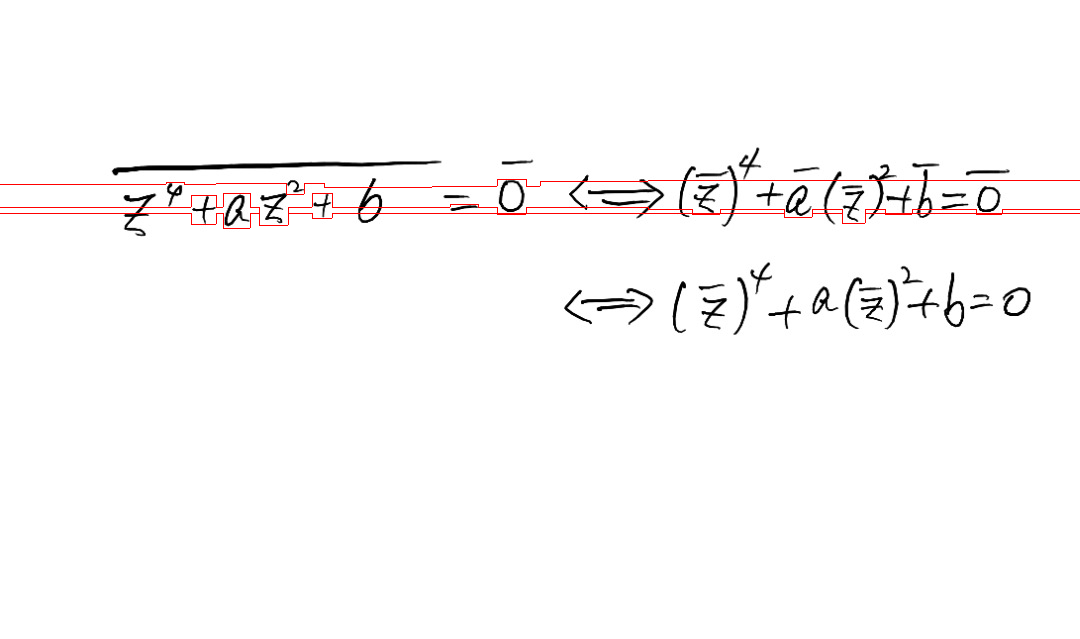 \overline{z^4+az^2+b}=\overline{0} ⟺ (\overline{z})^4+\overline{a}(\overline{z})^2+\overline{b}=\overline{0}
⟺ (\overline{z})^4+a(\overline{z})^2+b=0